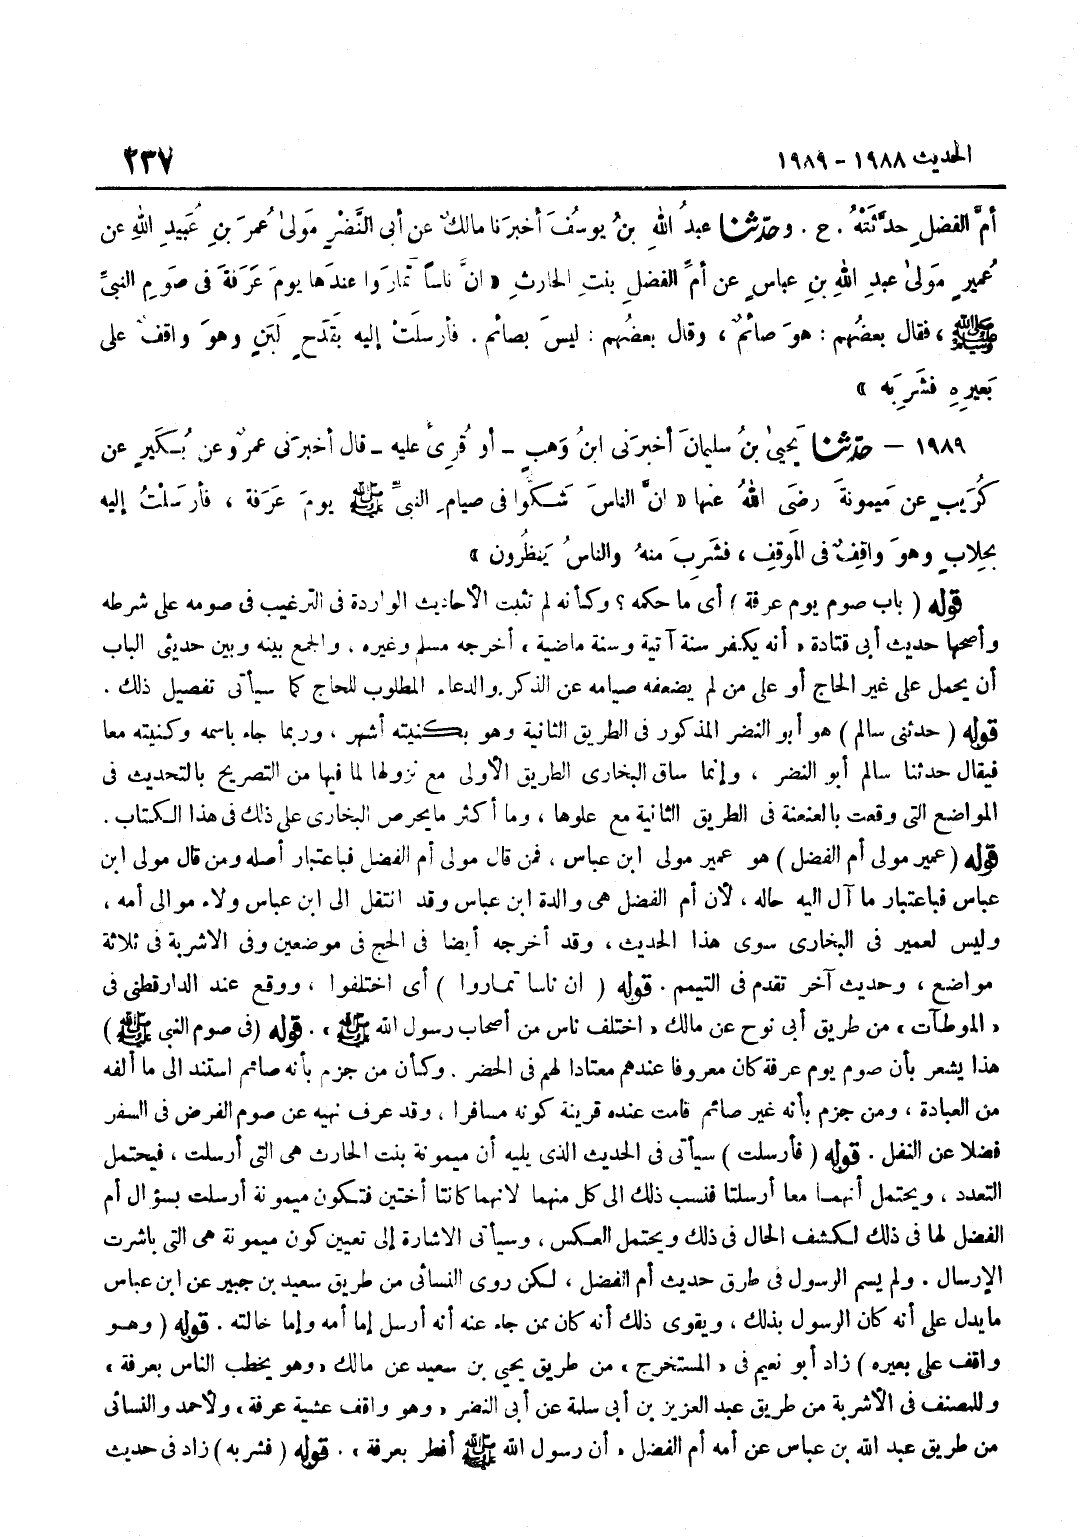 الحديث ١٩٨٨ - ١٩٨٩ ٢٣٧
أمِّ الفضلِ حدَّثَتْهُ . ح . وحدّثنا عبدُ اللهِ بنُ يوسُفَ أخبرَنا مالكٌ عن أبى النَّضْرِ مَولىٰ عُمرَ بنِ عُبيدِ اللهِ عن
عُميرٍ مَولىٰ عبدِ اللهِ بنِ عباسٍ عن أمِّ الفضلِ بنتِ الحارثِ « انَّ ناساً تمارَوا عندَها يومَ عَرَفةَ فى صَومِ النبيِّ
ﷺ ، فقال بعضُهم : هوَ صائمٌ ، وقال بعضُهم : ليسَ بصائم . فأرسلَتْ إليه بقَدَحِ لَبَنٍ وهوَ واقفٌ على
بَعيرِهِ فشَرِبَه »
١٩٨٩ - حدّثنا يَحيىٰ بنُ سليمانَ أخبرَنى ابنُ وَهبٍ - أو قُرِئَ عليه - قال أخبرَنى عمرٌو عن بُكَيرٍ عن
كُرَيبٍ عن مَيمونةَ رضىَ اللهُ عنها « انَّ الناسَ شَكُّوا فى صيامِ النبيِّ ﷺ يومَ عَرَفة ، فأرسَلَتْ إليه
بحِلابٍ وهوَ واقِفٌ فى المَوقِفِ ، فشَرِبَ منهُ والناسُ يَنظُرون »
قوله ( باب صوم يوم عرفة ) أى ما حكمه ؟ وكأنه لم تثبت الأحاديث الواردة فى الترغيب فى صومه على شرطه
وأصحها حديث أبى قتادة « أنه يكفر سنة آتية وسنة ماضية » أخرجه مسلم وغيره . والجمع بينه وبين حديثى الباب
أن يحمل على غير الحاج أو على من لم يضعفه صيامه عن الذكر والدعاء المطلوب للحاج كما سيأتى تفصيل ذلك .
قوله ( حدثنى سالم ) هو أبو النضر المذكور فى الطريق الثانية وهو بكنيته أشهر ، وربما جاء باسمه وكنيته معا
فيقال حدثنا سالم أبو النضر ، وإنما ساق البخارى الطريق الأولى مع نزولها لما فيها من التصريح بالتحديث فى
المواضع التى وقعت بالعنعنة فى الطريق الثانية مع علوها ، وما أكثر مايحرص البخارى على ذلك فى هذا الكتاب .
قوله ( عمير مولى أم الفضل ) هو عمير مولى ابن عباس ، فمن قال مولى أم الفضل فباعتبار أصله ومن قال مولى ابن
عباس فباعتبار ما آل اليه حاله ، لأن أم الفضل هى والدة ابن عباس وقد انتقل الى ابن عباس ولاء موالى أمه ،
وليس لعمير فى البخارى سوى هذا الحديث ، وقد أخرجه أيضا فى الحج فى موضعين وفى الاشربة فى ثلاثة
مواضع ، وحديث آخر تقدم فى التيمم . قوله ( ان ناسا تماروا ) أى اختلفوا ، ووقع عند الدارقطنى فى
« الموطآت » من طريق أبى نوح عن مالك « اختلف ناس من أصحاب رسول الله ﷺ » . قوله (فى صوم النبى ﷺ )
هذا يشعر بأن صوم يوم عرفة كان معروفا عندهم معتادا لهم فى الحضر . وكأن من جزم بأنه صائم استند الى ما ألفه
من العبادة ، ومن جزم بأنه غير صائم قامت عنده قرينة كونه مسافرا ، وقد عرف نهيه عن صوم الفرض فى السفر
فضلا عن النفل . قوله ( فأرسلت ) سيأتى فى الحديث الذى يليه أن ميمونة بنت الحارث هى التى أرسلت ، فيحتمل
التعدد ، ويحتمل أنهما معا أرسلتا فنسب ذلك الى كل منهما لانهما كانتا أختين فتكون ميمونة أرسلت بسؤال أم
الفضل لها فى ذلك لكشف الحال فى ذلك ويحتمل العكس ، وسيأتى الاشارة إلى تعيين كون ميمونة هى التى باشرت
الإرسال . ولم يسم الرسول فى طرق حديث أم الفضل ، لكن روى النسائى من طريق سعيد بن جبير عن ابن عباس
مايدل على أنه كان الرسول بذلك ، ويقوى ذلك أنه كان ممن جاء عنه أنه أرسل إما أمه وإما خالته . قوله ( وهو
واقف على بعيره ) زاد أبو نعيم فى « المستخرج » من طريق يحيى بن سعيد عن مالك « وهو يخطب الناس بعرفة »
وللمصنف فى الأشربة من طريق عبد العزيز بن أبى سلمة عن أبى النضر « وهو واقف عشية عرفة » ولأحمد والنسائى
من طريق عبد الله بن عباس عن أمه أم الفضل « أن رسول الله ﷺ أفطر بعرفة » . قوله ( فشربه ) زاد فى حديث